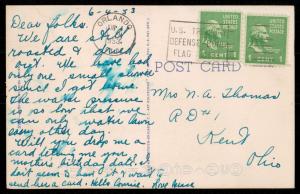 6-4-53
Dear folks.
We are still
roasted & dried
out. We have had
only one small shower
since I got home.
The water pressure
is so low that we
can only water lawns
every other day.
Will you drop me a
card telling me your
mothers birthday date. I
don't seem to have it & I want
send her a card. Hello Connie.
ORLANDO
JUN 4
1953
U.S.
DEFENSE
FLAG
UNITED STATES POSTAGE
1 CENT
UNITED STATES POSTAGE
1 CENT
POST CARD
Mrs N. A. Thomas
R D #
Kent
Ohio